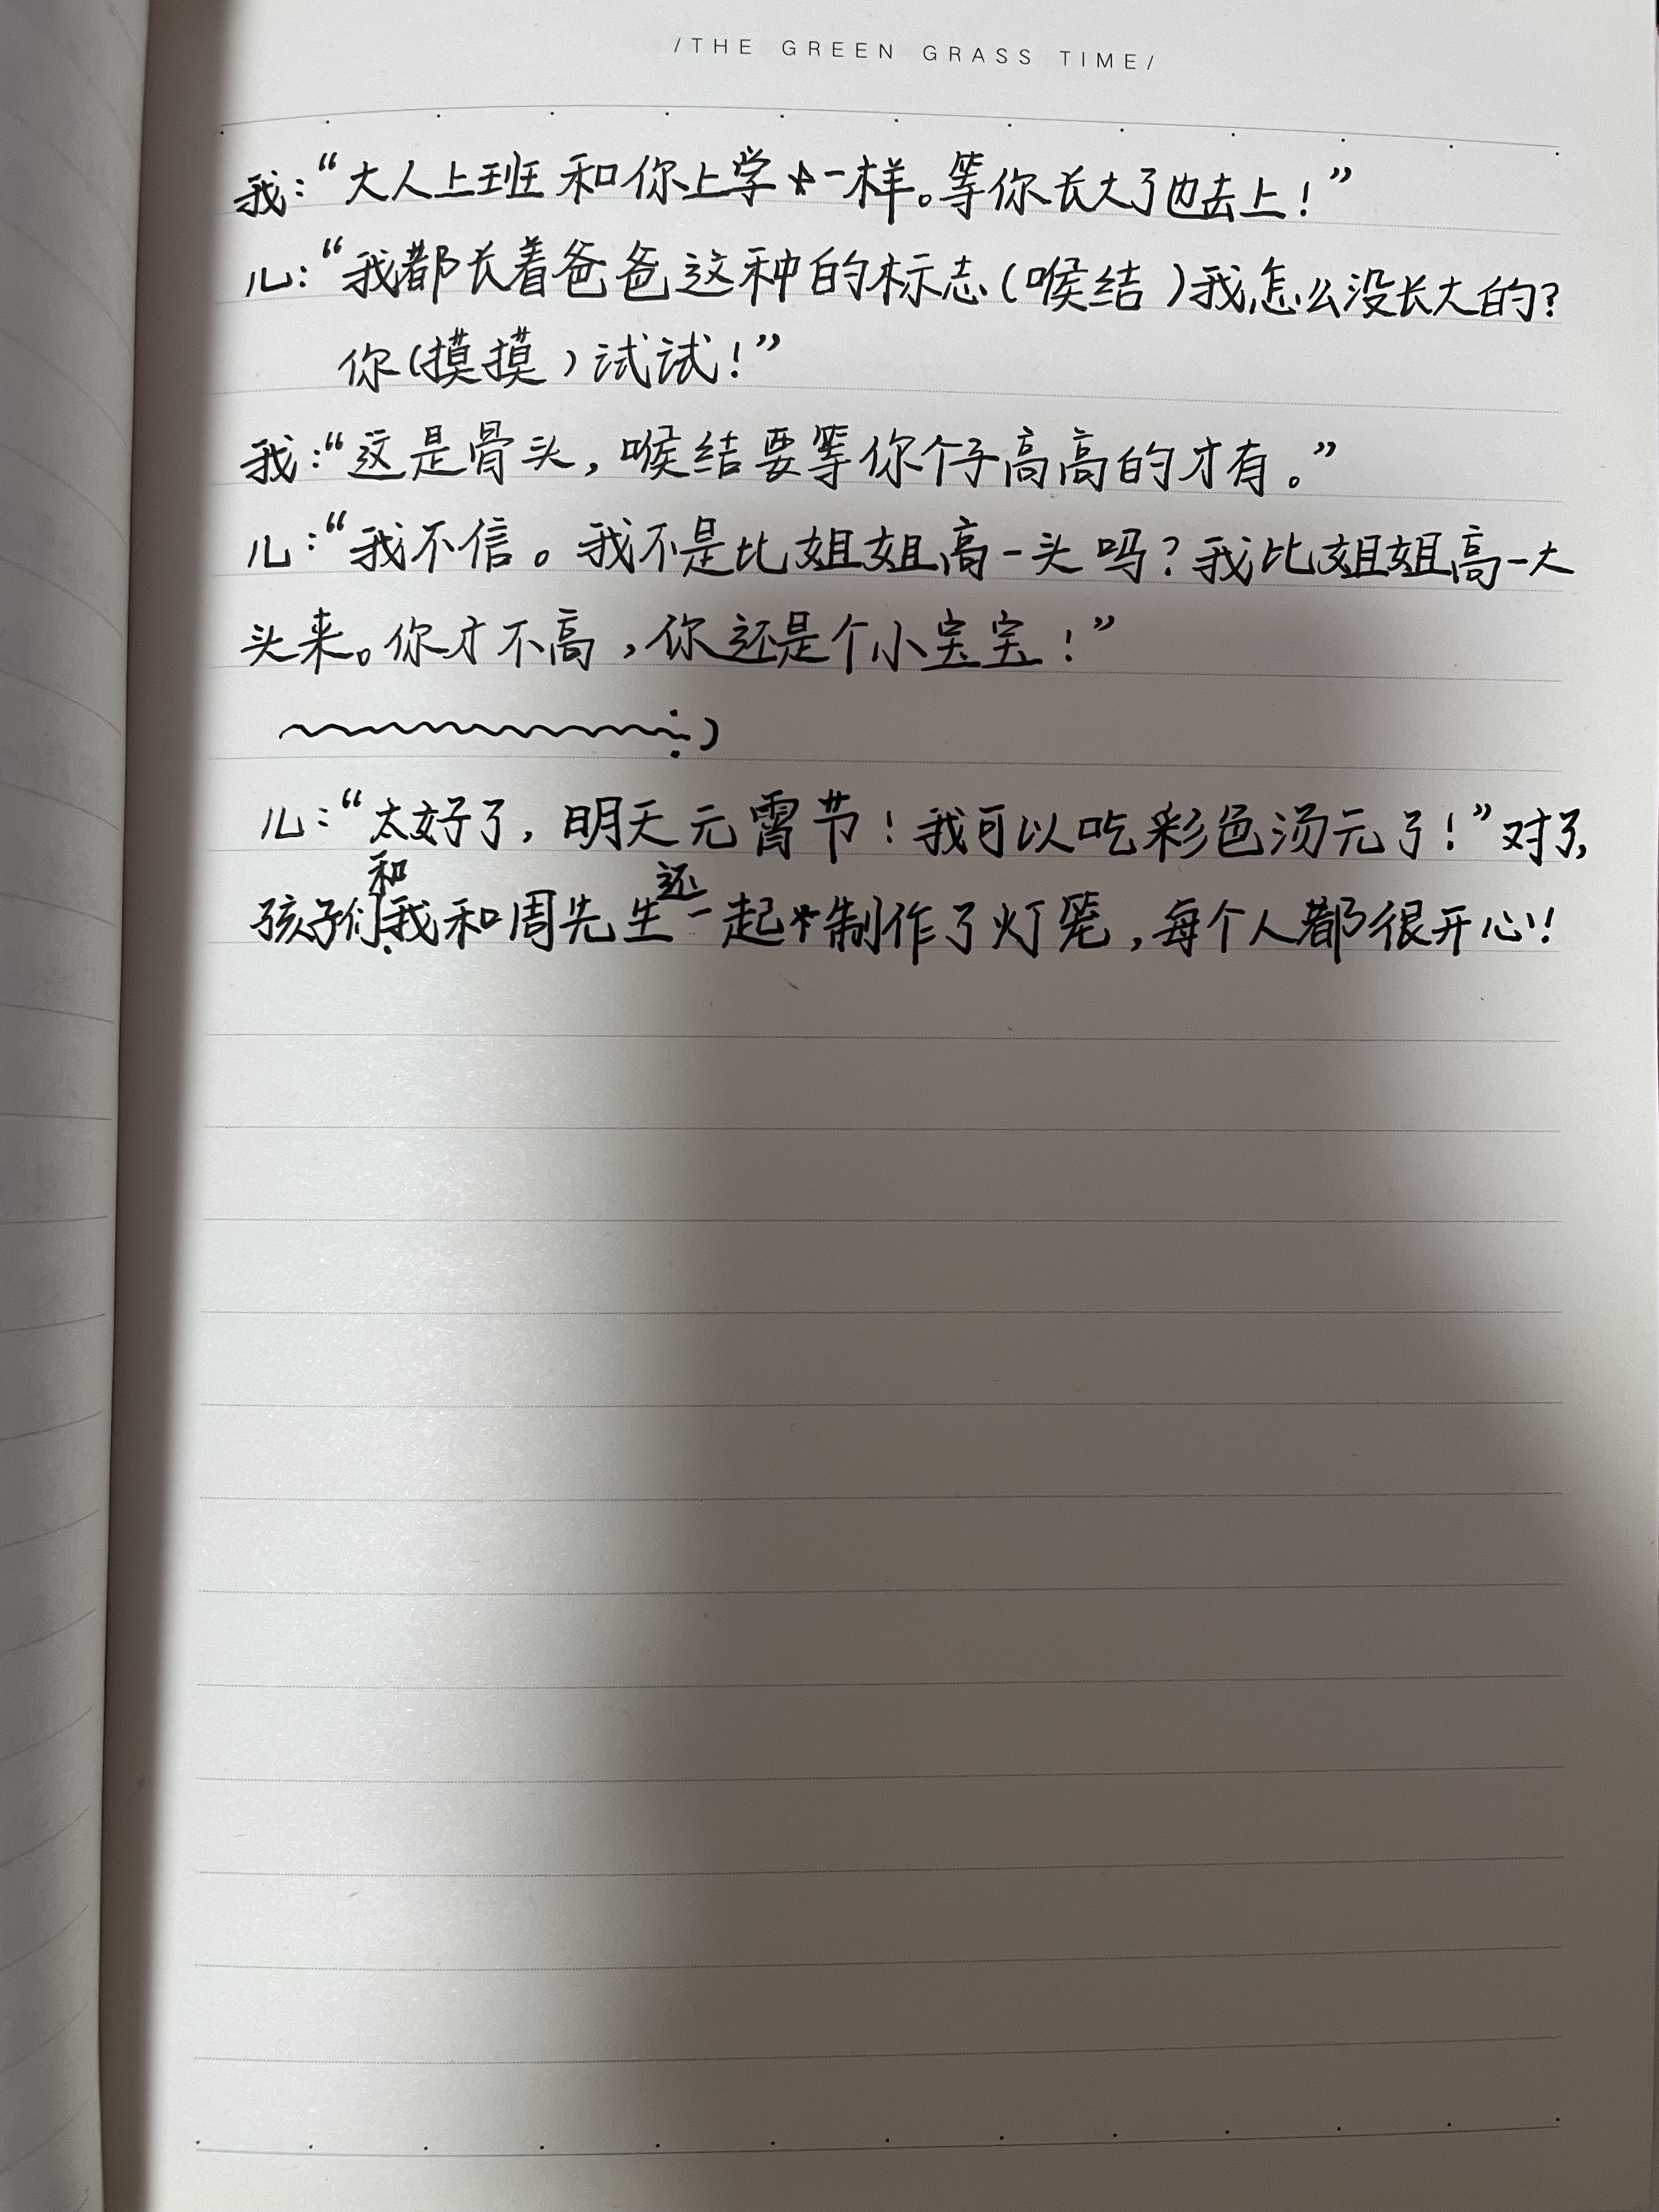 /THE GREEN GRASS TIME/
我:“大人上班和你上学一样。等你长大了也去上!”
儿:“我都长着爸爸这种的标志(喉结)我怎么没长大的?
你(摸摸)试试!”
我:“这是骨头,喉结要等你个子高高的才有。”
儿:“我不信。我不是比姐姐高一头吗?我比姐姐高一大
头来。你才不高,你还是个小宝宝!”
儿:“太好了,明天元霄节!我可以吃彩色汤元了!”对了,
孩子们和我和周先生还一起制作了灯笼,每个人都很开心!!